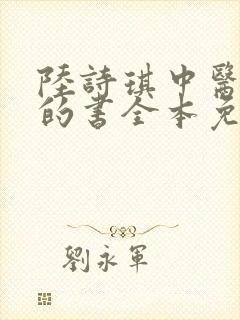 陸詩琪中醫
的書全本免
劉永軍